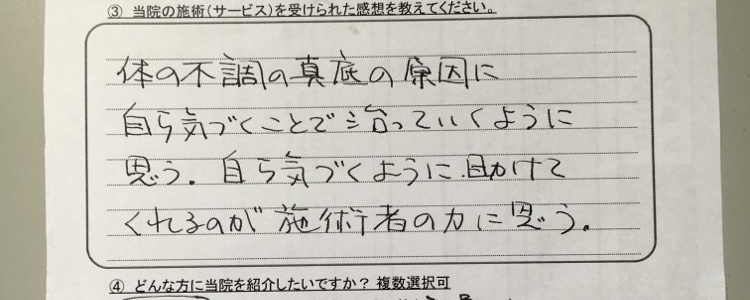 ③ 当院の施術(サービス)を受けられた感想を教えてください。
体の不調の真底の原因に
自ら気づくことで治っていくように
思う。自ら気づくように助けて
くれるのが施術者の力に思う。
④ どんな方に当院を紹介したいですか？ 複数選択可